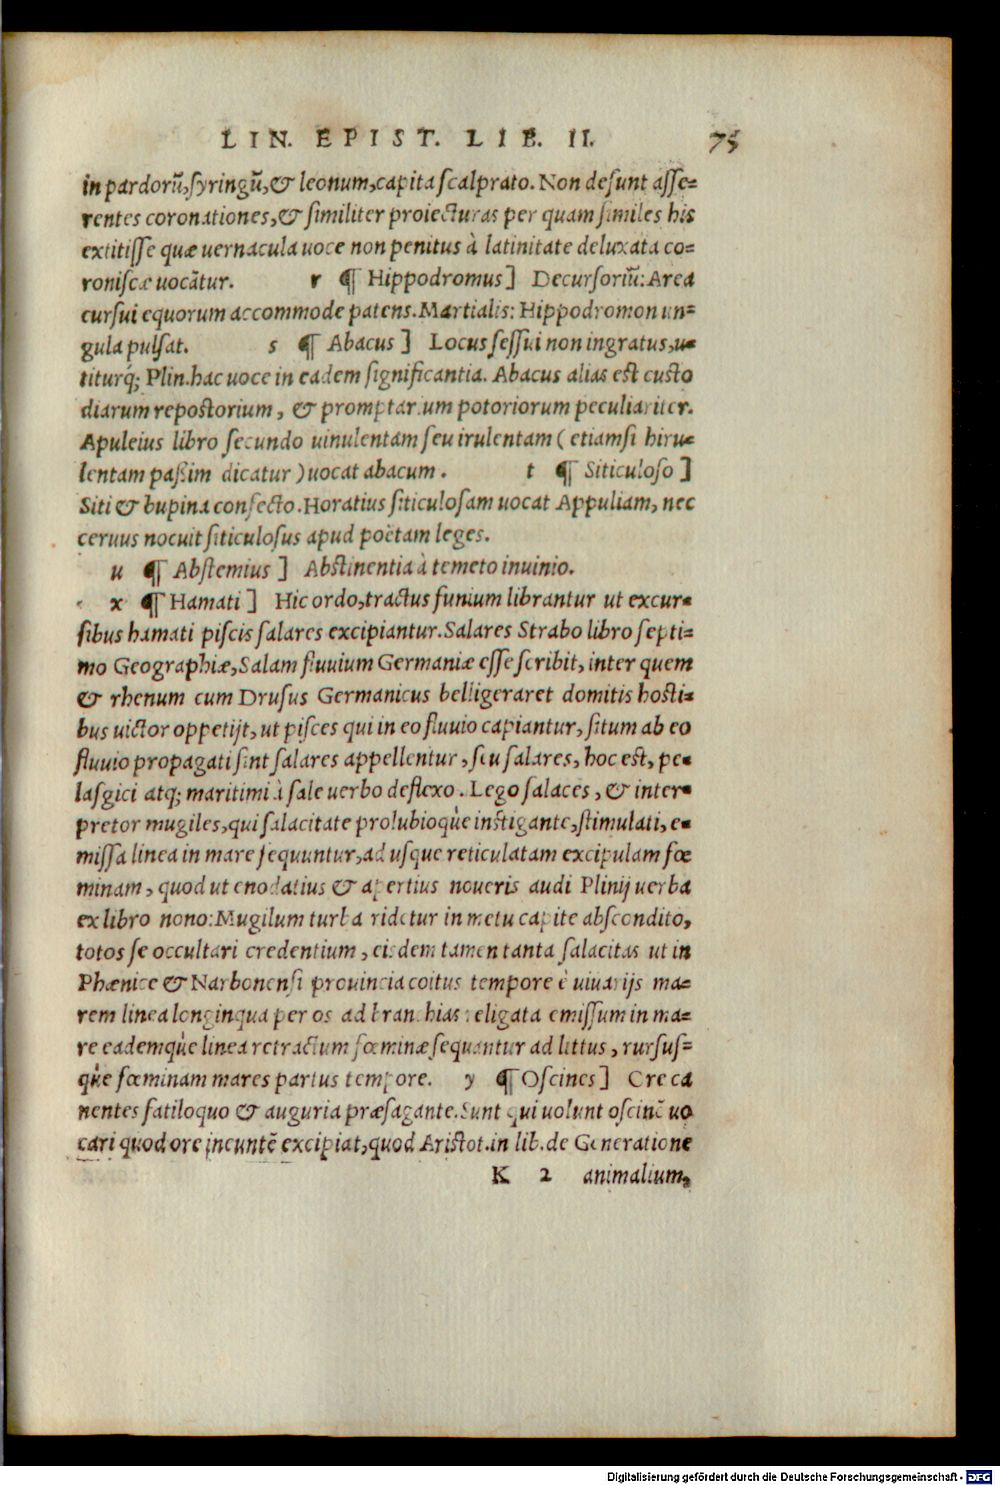 LIN. EPIST. LIB. II. 75
in pardorū, syringū, & leonum, capita scalprato. Non desunt asse=
rentes coronationes, & similiter proiecturas per quam similes his
extitisse quæ uernacula uoce non penitus à latinitate deluxata co=
roniscæ uocātur. r ¶ Hippodromus] Decursoriū: Area
cursui equorum accommode patens. Martialis: Hippodromon un=
gula pulsat. s ¶ Abacus] Locus sessui non ingratus, u=
titurq́; Plin. hac uoce in eadem significantia. Abacus alias est custo
diarum repostorium, & promptarium potoriorum peculiariter.
Apuleius libro secundo uinulentam seu irulentam (etiamsi hiru=
lentam paßim dicatur) uocat abacum. t ¶ Siticuloso]
Siti & bupina confecto. Horatius siticulosam uocat Appuliam, nec
ceruus nocuit siticulosus apud poëtam leges.
u ¶ Abstemius] Abstinentia à temeto inuinio.
x ¶ Hamati] Hic ordo, tractus funium librantur ut excur=
sibus hamati piscis salares excipiantur. Salares Strabo libro septi=
mo Geographiæ, Salam fluuium Germaniæ esse scribit, inter quem
& rhenum cum Drusus Germanicus belligeraret domitis hosti=
bus uictor oppetijt, ut pisces qui in eo fluuio capiantur, situm ab eo
fluuio propagati sint salares appellentur, seu salares, hoc est, pe=
lasgici atq; maritimi à sale uerbo deflexo. Lego salaces, & inter=
pretor mugiles, qui salacitate prolubioq̀ue instigante, stimulati, e=
missa linea in mare sequuntur, ad usque reticulatam excipulam fœ
minam, quod ut enodatius & apertius noueris audi Plinij uerba
ex libro nono: Mugilum turba ridetur in metu capite abscondito,
totos se occultari credentium, eisdem tamen tanta salacitas ut in
Phœnice & Narbonensi prouincia coitus tempore è uiuarijs ma=
rem linea longinqua per os ad branchias religata emissum in ma=
re eademq̀ue linea retractum fœminæ sequantur ad littus, rursus=
q̀ue fœminam mares partus tempore. y ¶ Oscines] Ore ca
nentes fatiloquo & auguria præsagante. Sunt qui uolunt oscinē uo
cari quod ore incuntē excipiat, quod Aristot. in lib. de Generatione
K 2 animalium,
Digitalisierung gefördert durch die Deutsche Forschungsgemeinschaft - DFG